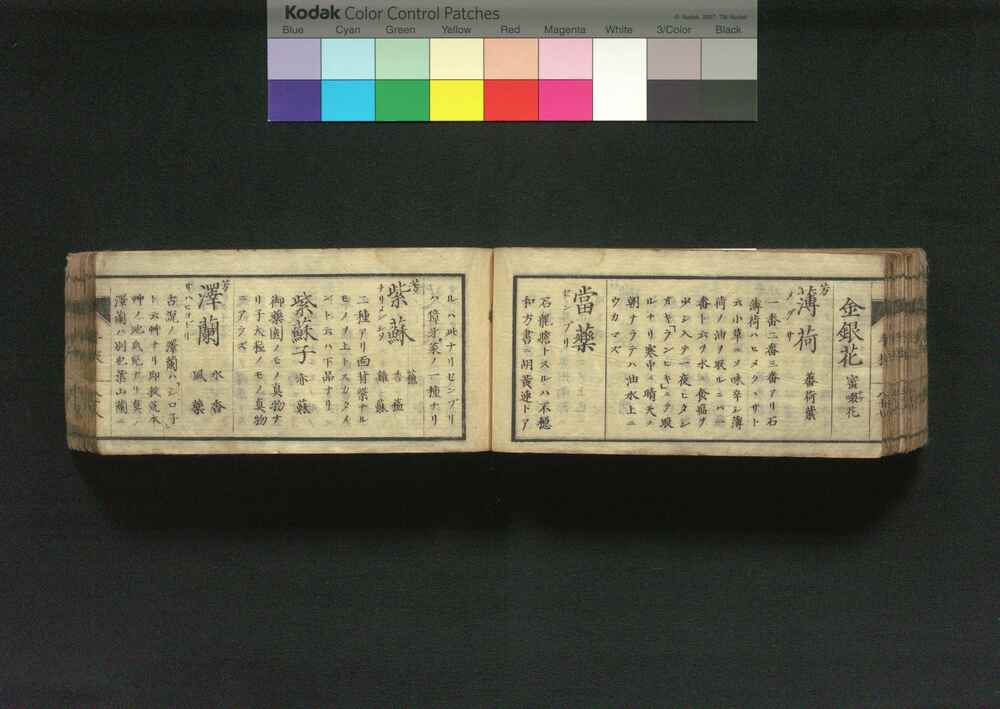 Kodak Color Control Patches
© Kodak, 2007, TM: Kodak
Blue Cyan Green Yellow Red Magenta White 3/Color Black
金銀花 蜜銀花
芳
薄荷 蕃荷葉
メグサ
一番二番三番アリ石
薄荷ハヒメハッカサト
云小草ニソ味辛シ薄
荷ノ油ノ取ルニハ二
番ト云ヲ水ニ食塩ヲ
少シ入テ一夜ヒタシ
オキランビキニテ取
ルナリ寒中ニ晴天ノ
朝ナラテハ油水上ニ
ウカマズ
當藥
センブリ
石龍膽トスルハ不穏
和方書ニ胡黄連トア
ルハ此ナリセンブリ
ハ獐牙菜ノ一種ナリ
芳
紫蘇 香蘇
雞蘇
チリメンジソ
二種アリ面背紫ナル
モノヲ上トスカタイ
ント云ハ下品ナリ
紫蘇子 赤蘇
御藥園ノモノ真物ナ
リ子大粒ノモノ真物
ニアラズ
芳
澤蘭 水香
風藥
サハヒヨドリ
古説ノ澤蘭ハシロ子
ト云艸ナリ即救荒本
艸ノ地瓜兒ナリ真ノ
澤蘭ハ別也葉山蘭ニ